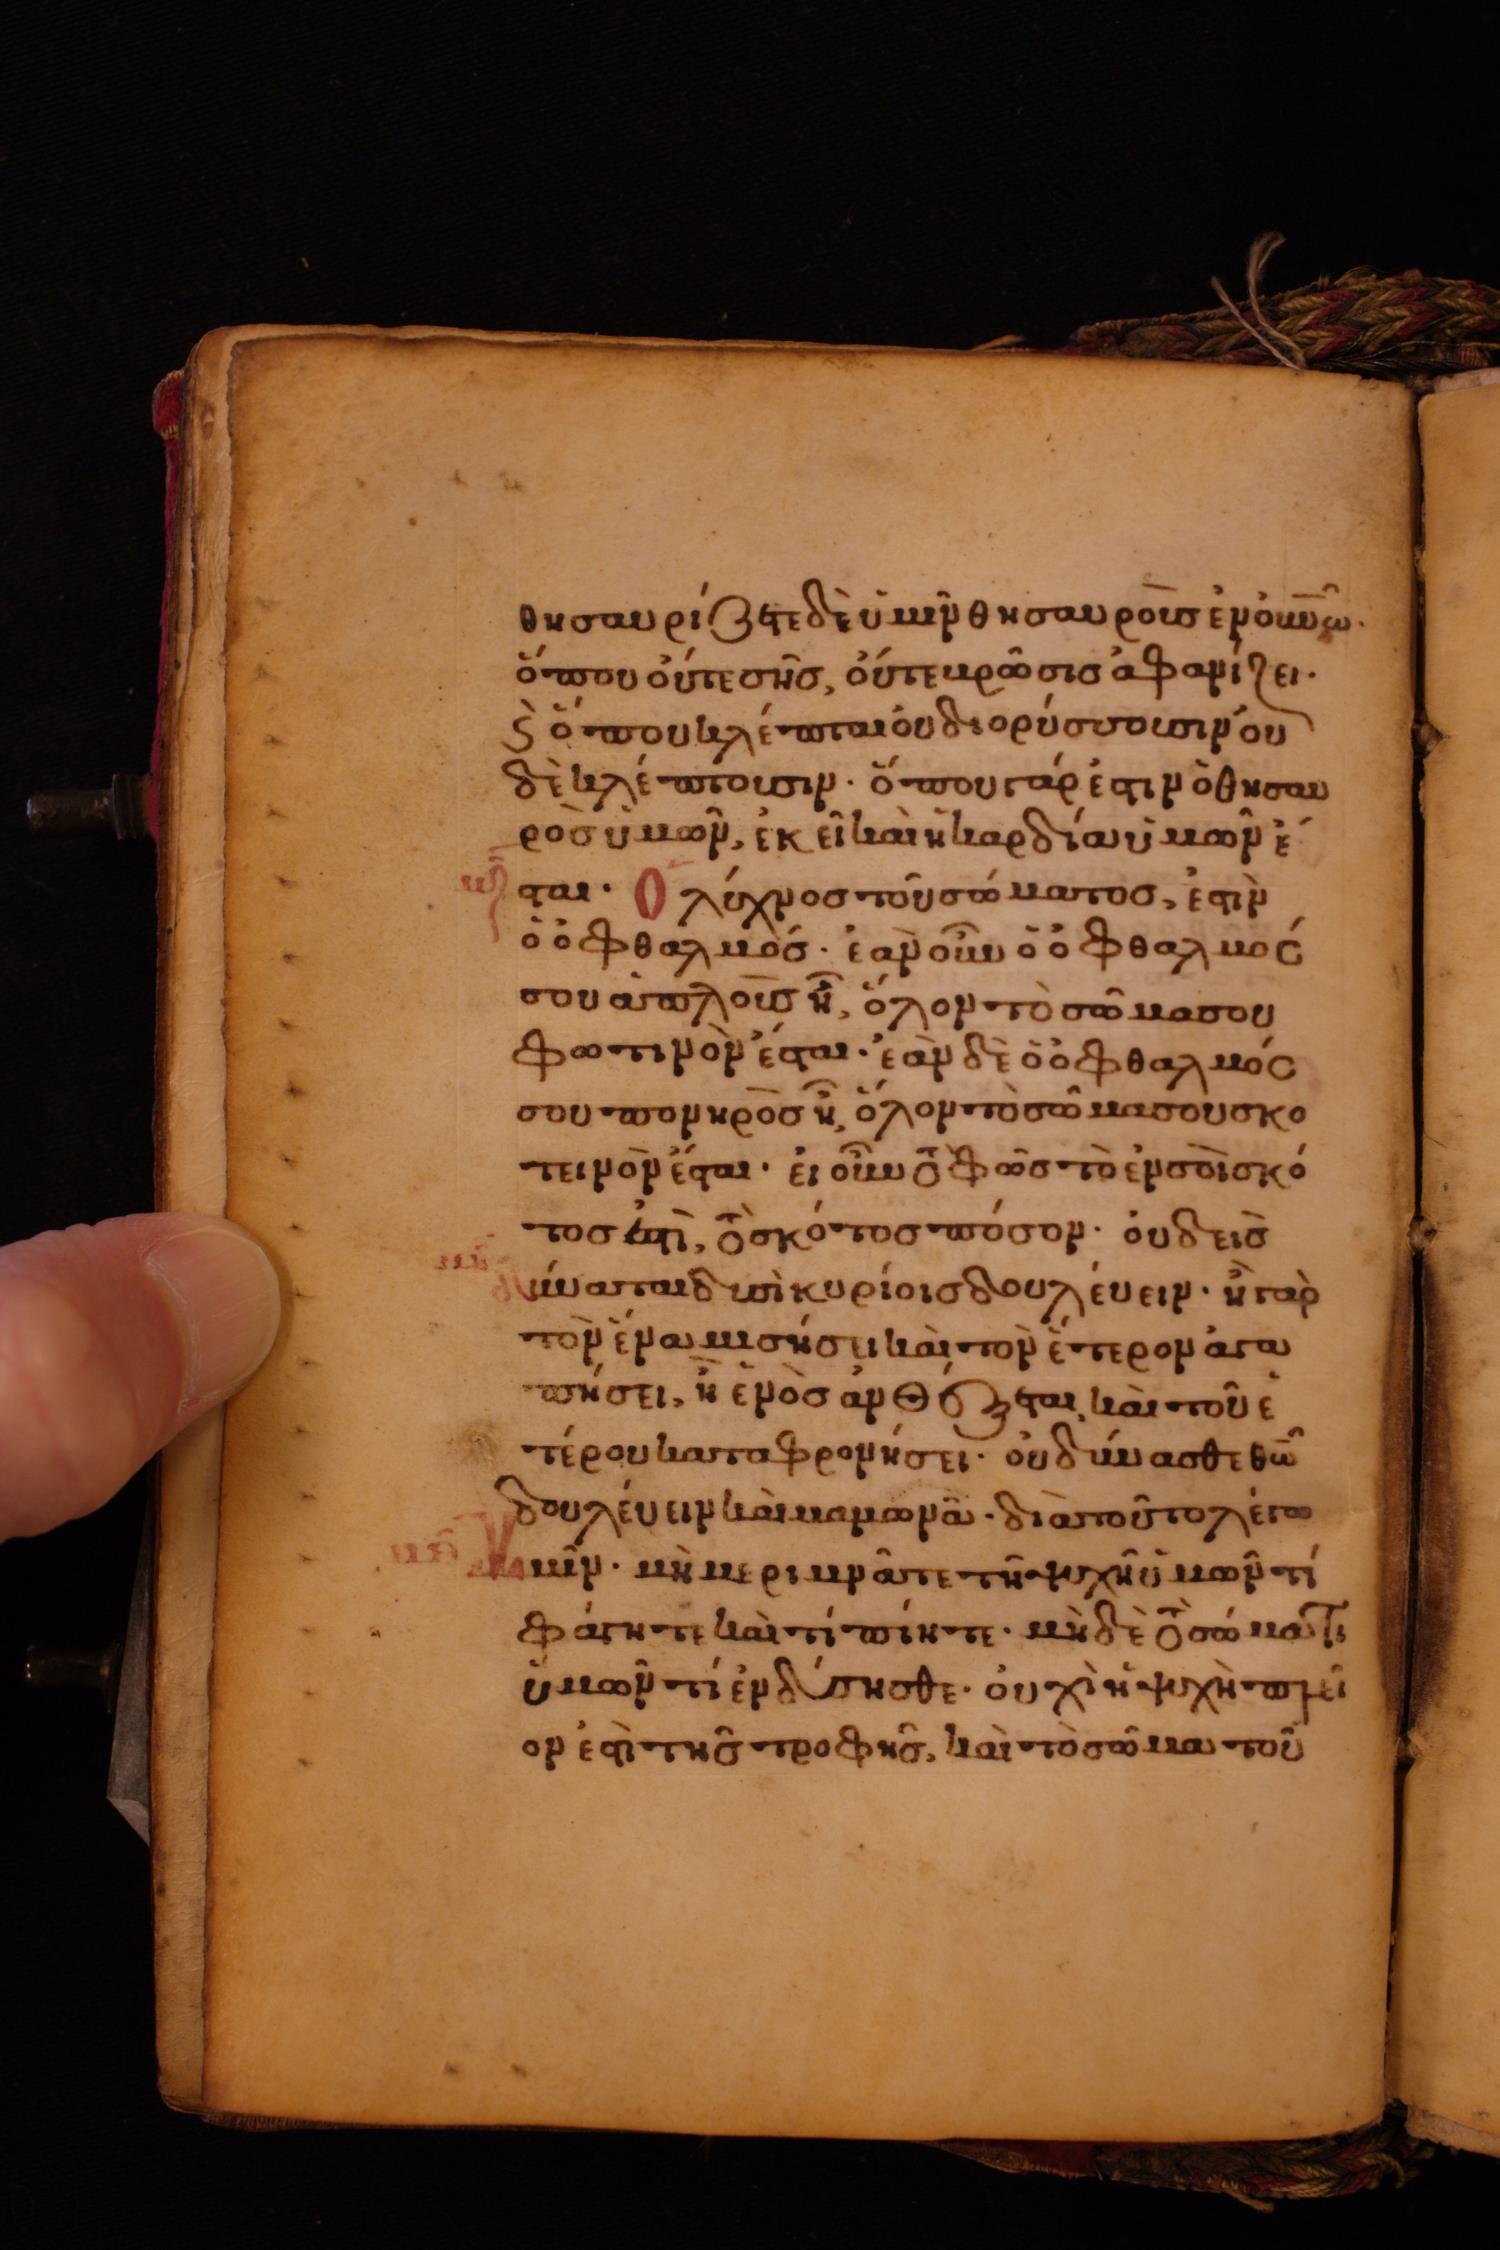 θησαυρίζετε δὲ ὑμῖν θησαυροὺς ἐν οὐνῶ·
ὅπου οὔτε σῆς, οὔτε βρῶσις ἀφανίζει·
ϗ ὅπου κλέπται οὐ διορύσσουσιν οὐ
δὲ κλέπτουσιν· ὅπου γάρ ἐστιν ὁ θησαυ
ρὸς ὑμῶν, ἐκεῖ καὶ ἡ καρδία ὑμῶν ἔ
σται· Ὁ λύχνος τοῦ σώματος, ἐστὶν
ὁ ὀφθαλμὸς· ἐὰν οὖν ὁ ὀφθαλμός
σου ἁπλοῦς ἦ, ὅλον τὸ σῶμα σου
φωτινὸν ἔσται· ἐὰν δὲ ὁ ὀφθαλμός
σου πονηρὸς ἦ, ὅλον τὸ σῶμα σου σκο
τεινὸν ἔσται· εἰ οὖν τὸ φῶς τὸ ἐν σοὶ σκό
τος ἐστὶ, τὸ σκότος πόσον· οὐδεὶς
δύναται δυσὶ κυρίοις δουλέυειν· ἢ γὰρ
τὸν ἕνα μισήσει καὶ τὸν ἕτερον ἀγα
πήσει, ἢ ἑνὸς ἀνθέξεται, καὶ τοῦ ἑ
τέρου καταφρονήσει· οὐ δύνασθε θῶ
δουλέυειν καὶ μαμωνᾶ· διὰ τοῦτο λέγω
ὑμῖν· μὴ μεριμνᾶτε τῆ ψυχῆ ὑμῶν τί
φάγητε καὶ τί πίητε· μὴ δὲ τὸ σώματι
ὑμῶν τί ἐνδύσησθε· οὐχὶ ἡ ψυχὴ πλεῖ
ον ἐστὶ τῆς τροφῆς, καὶ τὸ σῶμα τοῦ